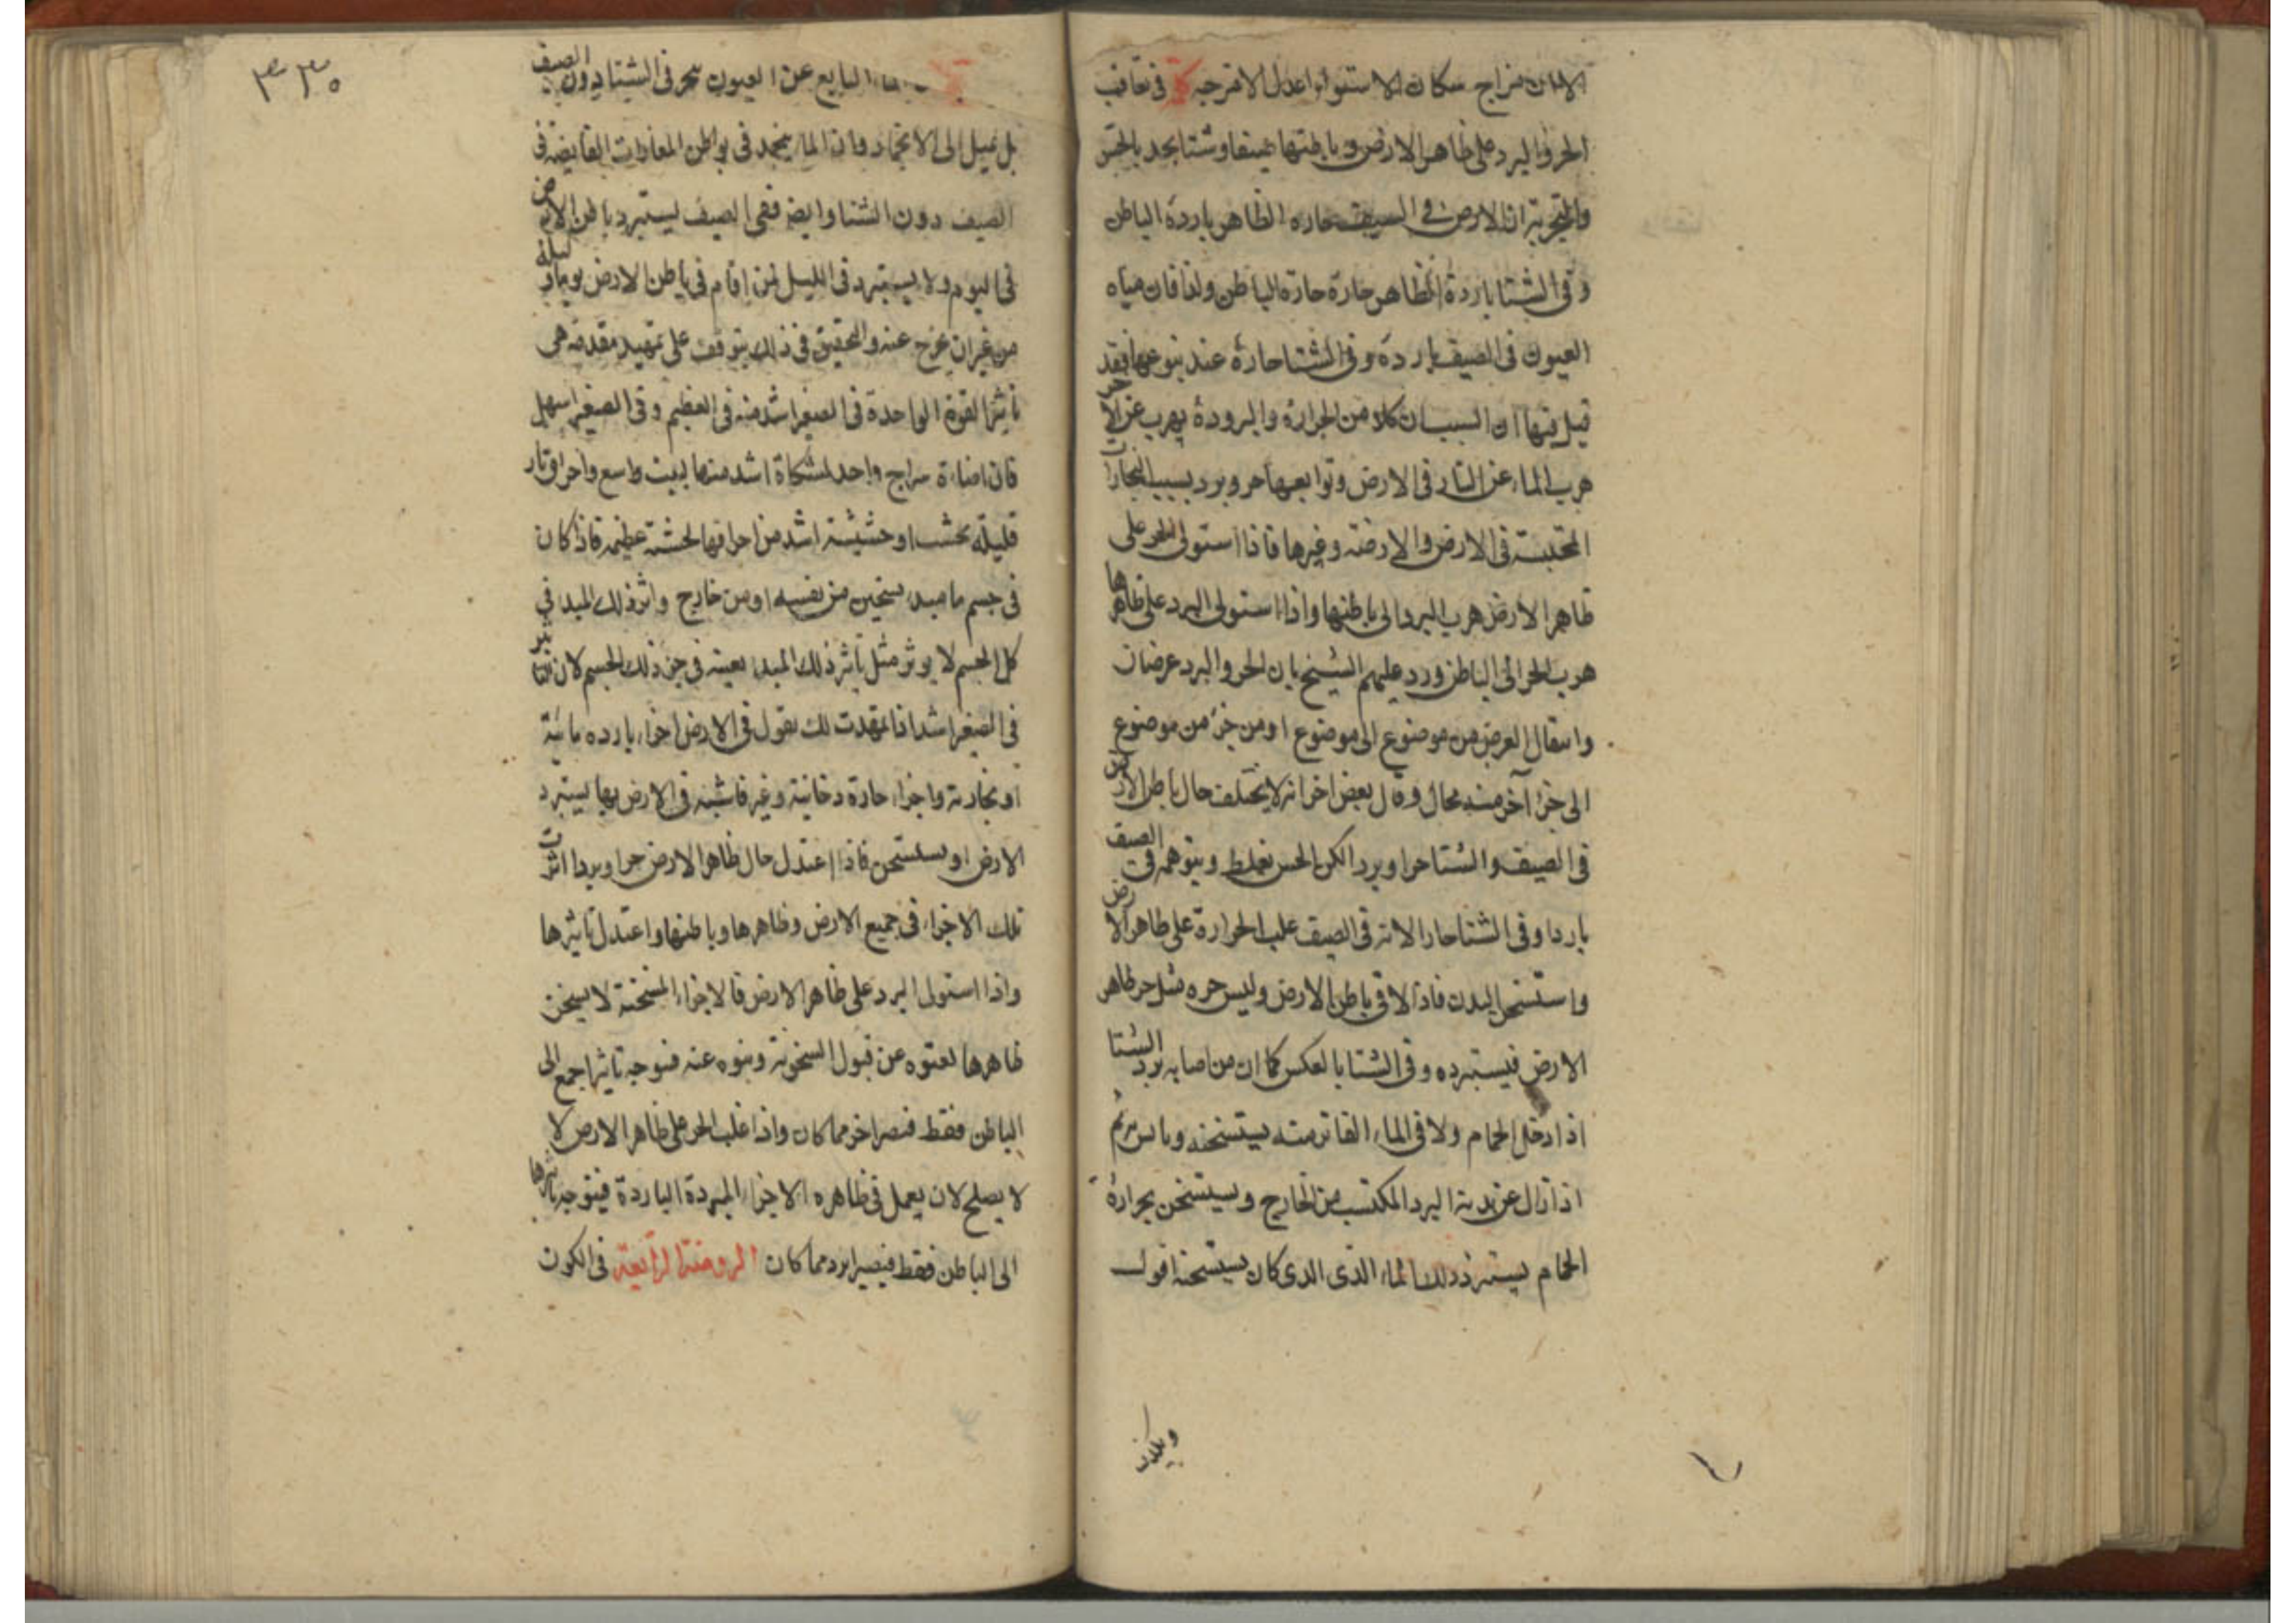 مزاج سكان الاستواء اعدل الامزجة في تعاقب
الحر والبرد على ظاهر الارض وباطنها صيفا وشتا يجد بالحس
والتجربة ان الارض في الصيف حاره الظاهر باردة الباطن
وفي الشتا باردة الظاهر حارة حارة الباطن ولذا فان مياه
العيون في الصيف باردة وفي الشتا حارة عند ينوعها فقد
قيل فيها ان السببان كلا من الحرارة والبرودة يهرب عن الاخر
هرب الماء عن النار في الارض وتوابعها حر وبرد بسبب البخارات
المحتبسة في الارض والارضته وغيرها فاذا استولى الحر على
ظاهر الارض هرب البرد الى باطنها واذا استولى البرد على ظاهرها
هرب الحر الى الباطن ورد عليهم الشيخ بان الحر والبرد عرضان
وانتقال العرض من موضوع الى موضوع او من جزء من موضوع
الى جزء آخر منه محال وقال بعض اخر انه لا يختلف حال باطن الارض
في الصيف والشتا حرا وبردا لكن الحس يغلط ويتوهمه في الصيف
باردا وفي الشتا حارا لانه في الصيف غلب الحرارة على ظاهر الارض
واستسخن البدن فاذا لاقى باطن الارض وليس حره مثل حر ظاهر
الارض فيستبرده وفي الشتا بالعكس كما ان من اصابه برد الشتا
اذا دخل الحمام ولاقى الماء الفاتر منه يستسخنه
اذا زال عن بدنه البرد المكتسب من الخارج ويستسخن بحرارة
الحمام يستبرد ذلك الماء الذى الذى كان يستسخنه اقول
٣٣٠
النابع عن العيون حر في الشتا دون الصيف
بل يميل الى الانجماد وان الماء ينجمد في بواطن المغارات القابضة في
الصيف دون الشتا وايضه ففي الصيف يستبرد باطن الارض
في اليوم ولا يستبرد في الليل لمن اقام في باطن الارض يوما وليلة
من غير ان يخرج عنه والتحقيق في ذلك يتوقف على تمهيد مقدمة هي
تاثير القوة الواحدة في الصغير اشد منه في العظيم وفي الصغير اسهل
فان اضاءة سراج واحد لمشكاة اشد منها لبيت واسع واحراق نار
قليلة لخشب او حشيشة اشد من احراقها لخشبة عظيمة فاذا كان
في جسم ما مبدء تسخين من نفسه او من خارج واثر ذلك المبدء في
كل الجسم لا يوثر مثل تاثير ذلك المبدء بعينه في جزء ذلك الجسم لان التاثير
في الصغير اشد اذا تمهدت لك نقول في الارض اجزاء بارده مائية
او بخارية واجزاء حارة دخانية وغير فاشية في الارض بها يستبرد
الارض او يستسخن فاذا اعتدل حال ظاهر الارض حرا وبردا اثرت
تلك الاجزاء في جميع الارض وظاهرها وباطنها واعتدل تاثيرها
واذا استولى البرد على ظاهر الارض فالاجزاء المسخنة لا يسخن
ظاهرها لعتوه عن قبول السخونة ونبوه عنه فتوجه تاثيرا جمع الى
الباطن فقط فتصير احر مما كان واذا غلب الحر على ظاهر الارض لا
لا يصلح لان يعمل في ظاهره الاجزاء المبردة الباردة فيتوجه تاثيرها
الى الباطن فقط فيصير ابرد مما كان الروضة الرابعة في الكون